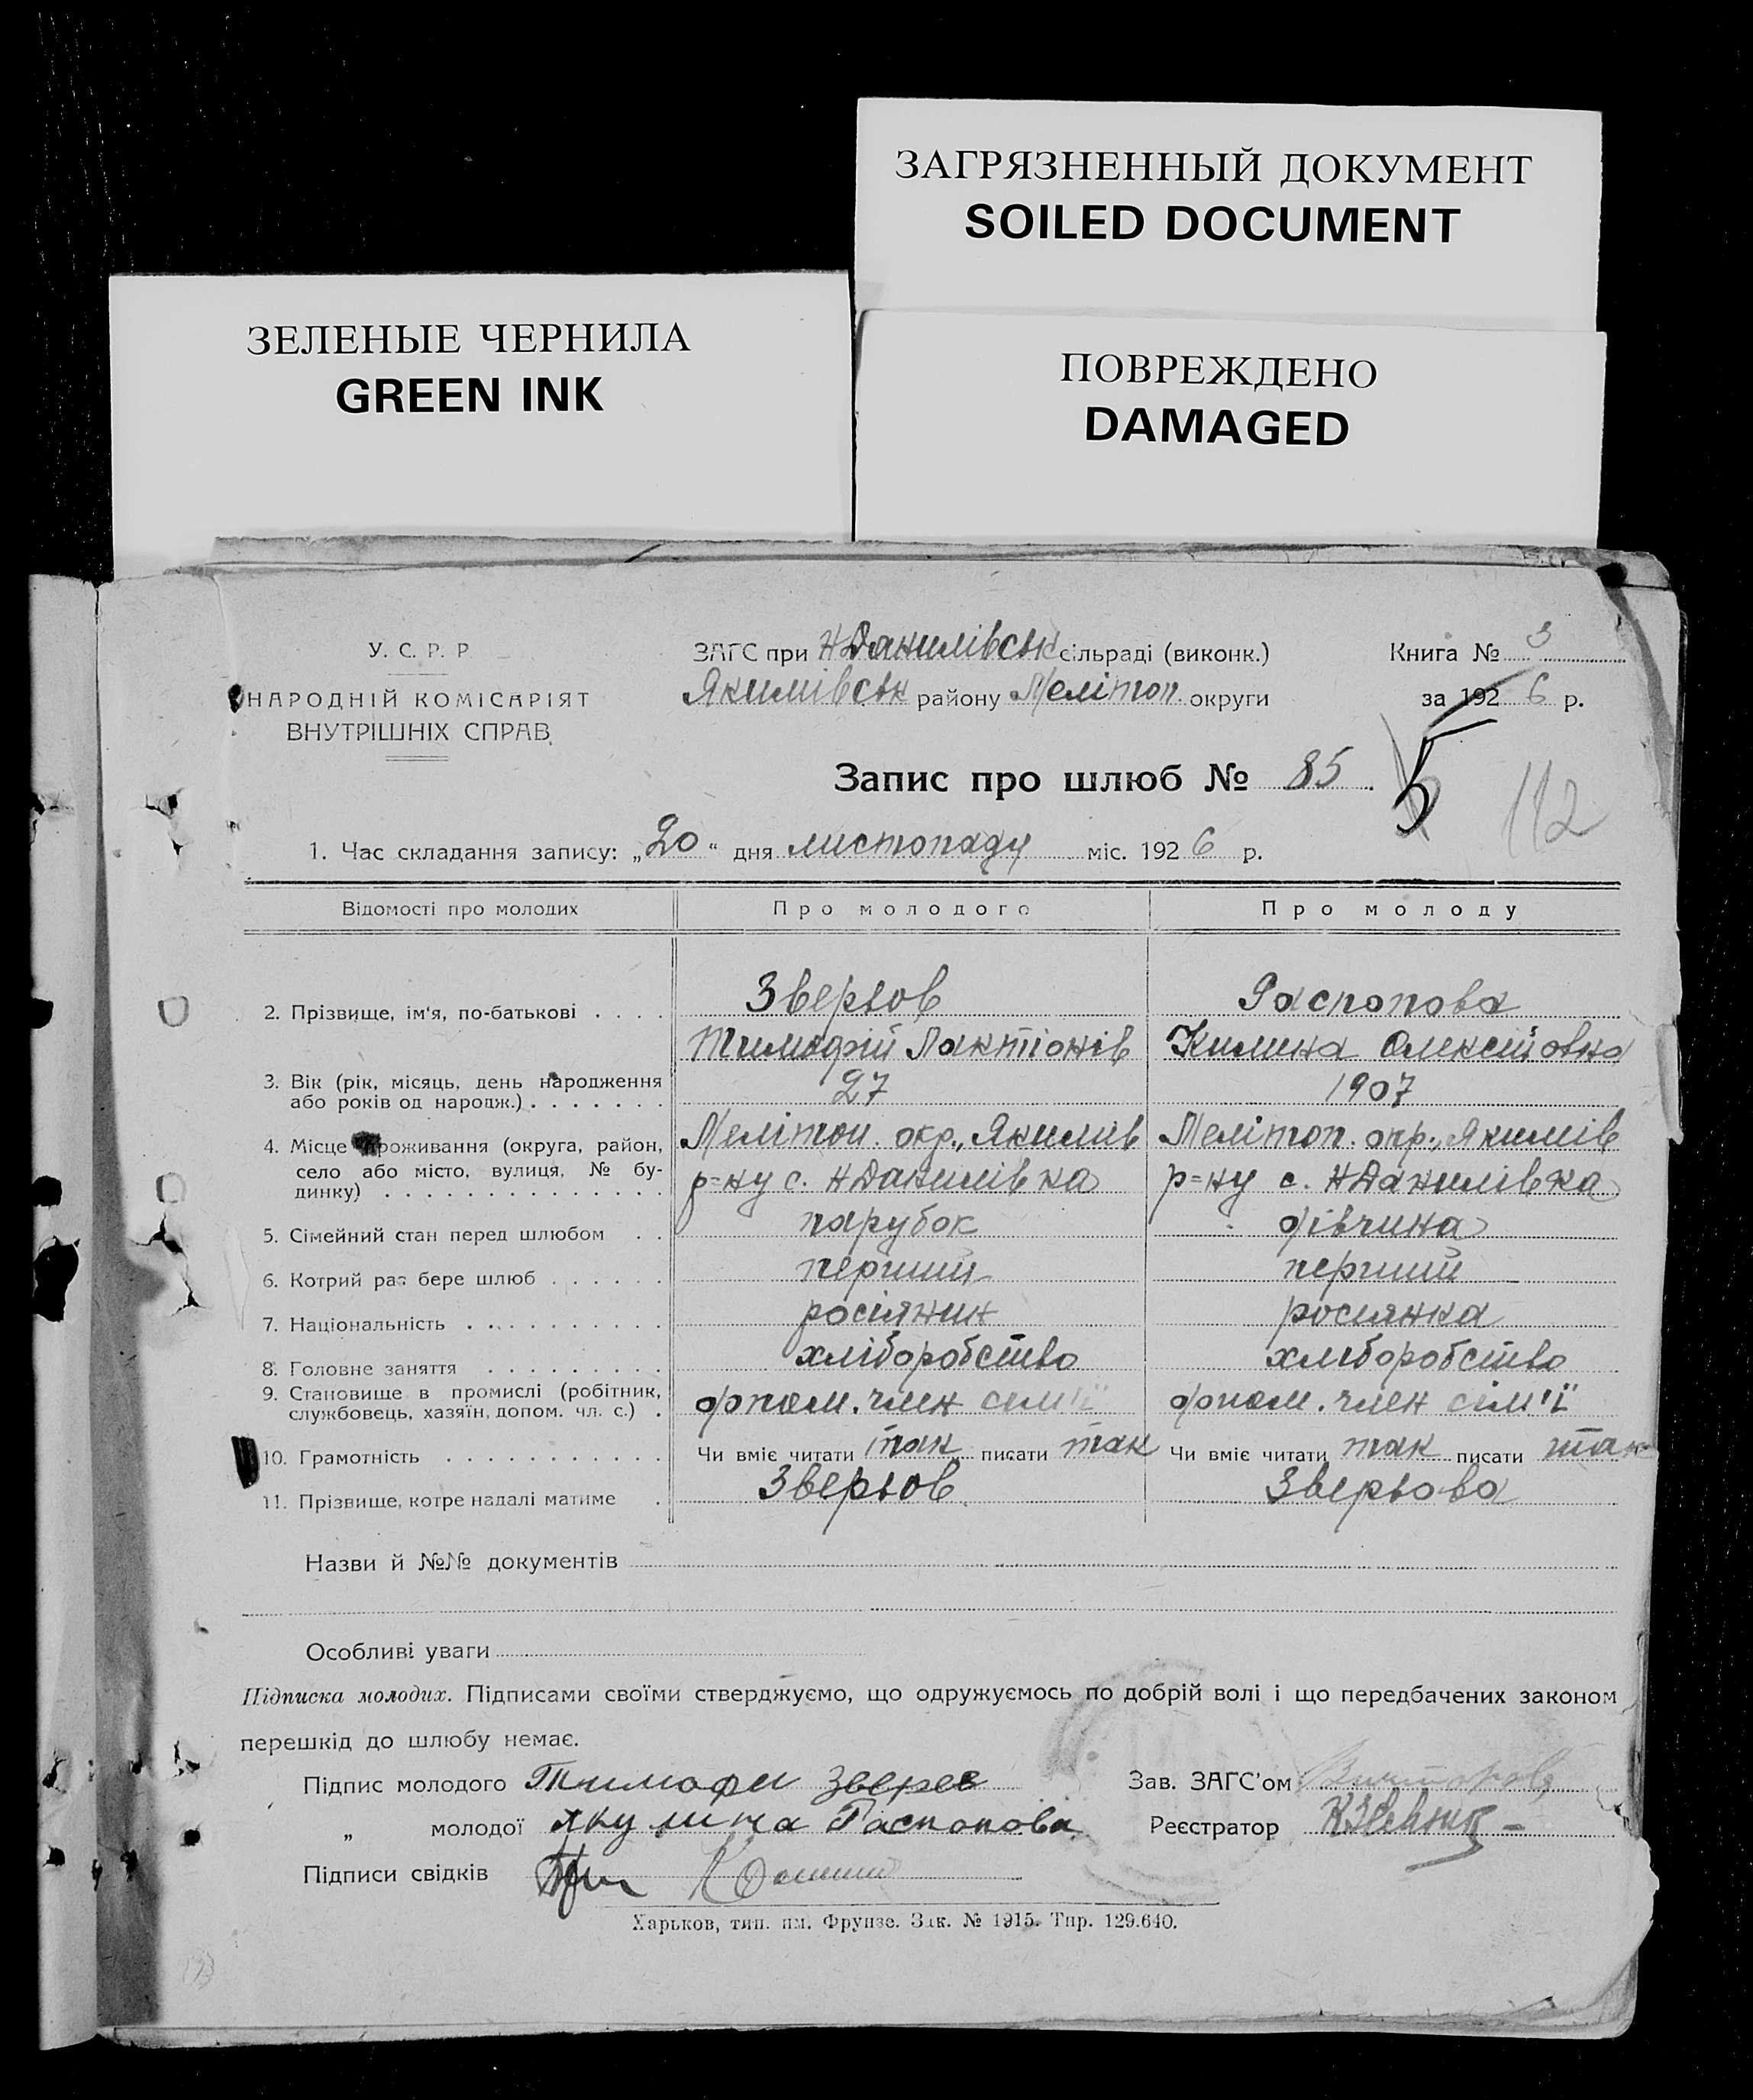 ЗАГРЯЗНЕННЫЙ ДОКУМЕНТ
SOILED DOCUMENT
ЗЕЛЕНЫЕ ЧЕРНИЛА
GREEN INK
ПОВРЕЖДЕНО
DAMAGED
У. С. Р. Р.
НАРОДНІЙ КОМІСАРІЯТ
ВНУТРІШНІХ СПРАВ.
ЗАГС при Н Данилівськ сільраді (виконк.)
Якимівськ району Мелітоп. округи
Книга № 3
за 1926 р.
Запис про шлюб № 85
5
112
1. Час складання запису: „20" дня листопаду міс. 1926 р.
Відомості про молодих Про молодого Про молоду
2. Прізвище, ім'я, по-батькові . . . . Зверьов Распопова
Тимофій Лактіонів Килина Олексійовна
3. Вік (рік, місяць, день народження або років од народж.) . . . . . . . 27 1907
4. Місце проживання (округа, район, село або місто, вулиця, № будинку) . . . . . . . . . . . . . . Мелітоп. окр., Якимів Мелітоп. окр., Якимів
р=ну с. Н Данилівка р=ну с. Н Данилівка
5. Сімейний стан перед шлюбом . . парубок дівчина
6. Котрий раз бере шлюб . . . . . . перший перший
7. Національність . . . . . . . . . . росіянин росіянка
8. Головне заняття . . . . . . . . . хліборобство хліборобство
9. Становище в промислі (робітник, службовець, хазяїн, допом. чл. с.) . допом. член сім'ї допом. член сім'ї
10. Грамотність . . . . . . . . . . . Чи вміє читати так писати так Чи вміє читати так писати так
11. Прізвище, котре надалі матиме . Зверьов. Зверьова
Назви й №№ документів
Особливі уваги
Підписка молодих. Підписами своїми стверджуємо, що одружуємось по добрій волі і що передбачених законом
перешкід до шлюбу немає.
Підпис молодого Тимофи Зверев Зав. ЗАГС'ом
„ молодої Якулина Распопова Реєстратор
Підписи свідків
Харьков, тип. им. Фрунзе. Зак. № 1915. Тир. 129.640.